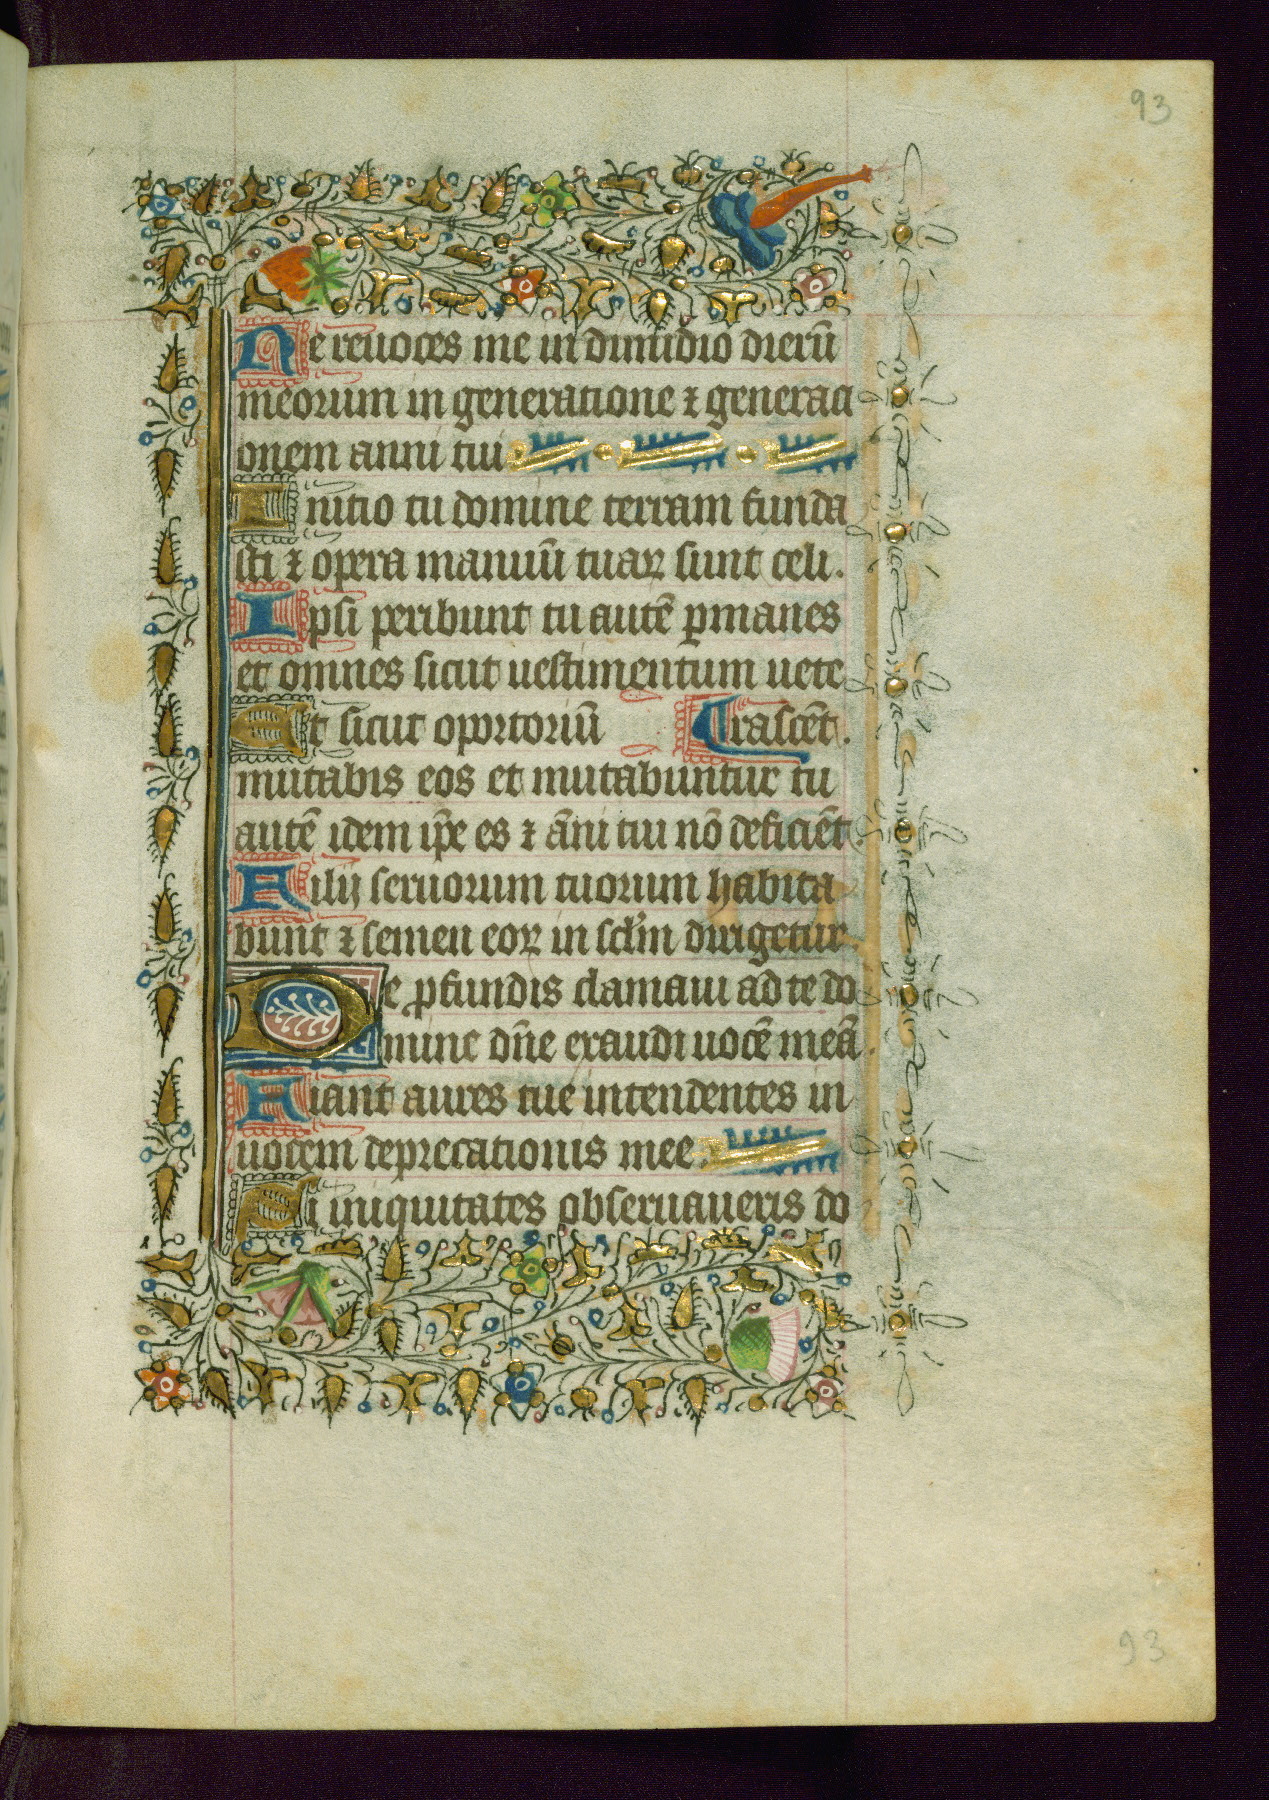 93
Ne reuoces me in dimidio dierū
meorum in generatione ⁊ generaci
onem anni tui
Initio tu domine terram funda
sti ⁊ opera manuū tuaꝝ sunt celi.
Ipsi peribunt tu autē ꝑmanes
et omnes sicut uestimentum uete
Et sicut oportoriū rascēt.
mutabis eos et mutabuntur tu
autē idem ip̄e es ⁊ āni tui nō deficiēt.
Filij seruorum tuorum habita
bunt ⁊ semen eoꝝ in sclm̄ dirigetur.
De ꝓfundis clamaui ad te do
mine dn̄e exaudi uocē meā.
Fiant aures tue intendentes in
uocem deprecationis mee.
Si iniquitates obseruaueris do
93